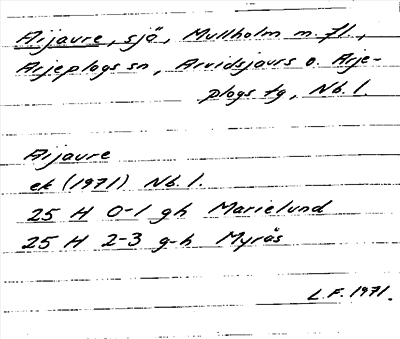 Aijaure, sjö, Mullholm m. fl.,
Arjeplogs sn, Arvidsjaurs o. Arje-
plogs tg, Nb. l.
Aijaure
ek (1971) Nb. l.
25 H 0-1 gh Marielund
25 H 2-3 g-h Myrås
L.F. 1971.